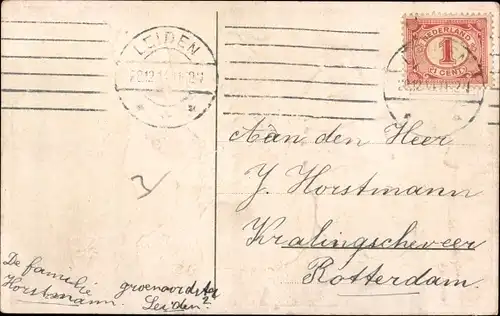 LEIDEN
NEDERLAND
1
CENT
Aan den Heer
J. Horstmann
Kralingscheveer
Rotterdam.
De familie
Horstmann.
Leiden